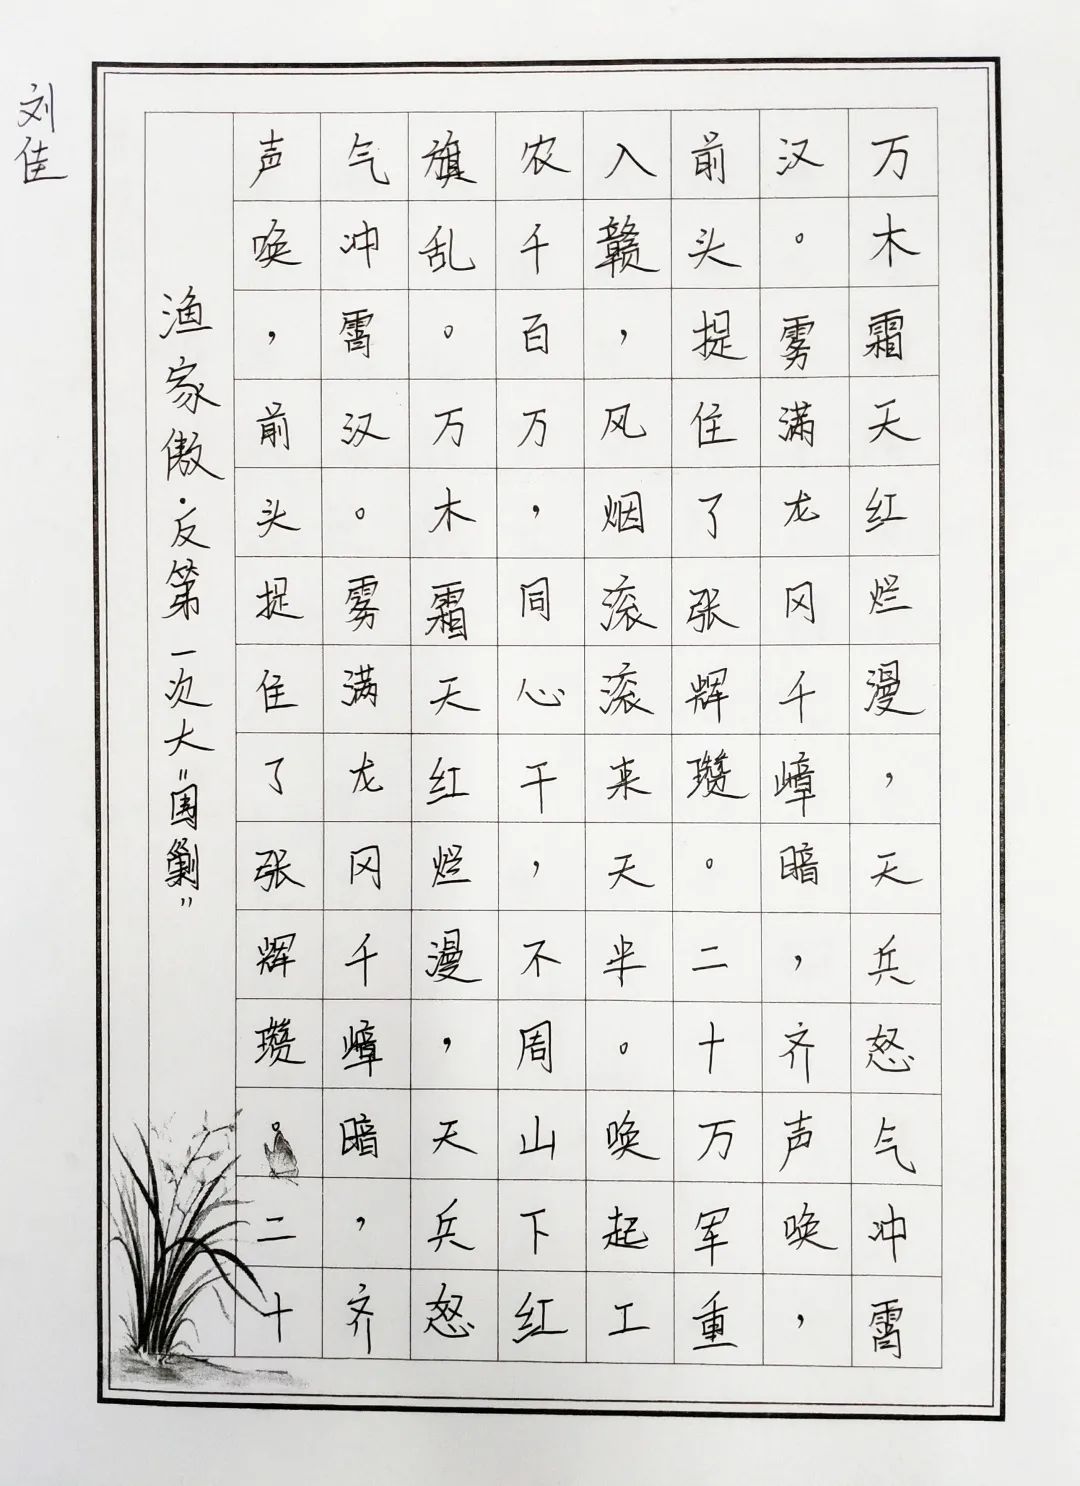 万木霜天红烂漫，天兵怒气冲霄
汉。雾满龙冈千嶂暗，齐声唤，
前头捉住了张辉瓒。二十万军重
入赣，风烟滚滚来天半。唤起工
农千百万，同心干，不周山下红
旗乱。万木霜天红烂漫，天兵怒
气冲霄汉。雾满龙冈千嶂暗，齐
声唤，前头捉住了张辉瓒。二十
渔家傲·反第一次大“围剿”
刘佳